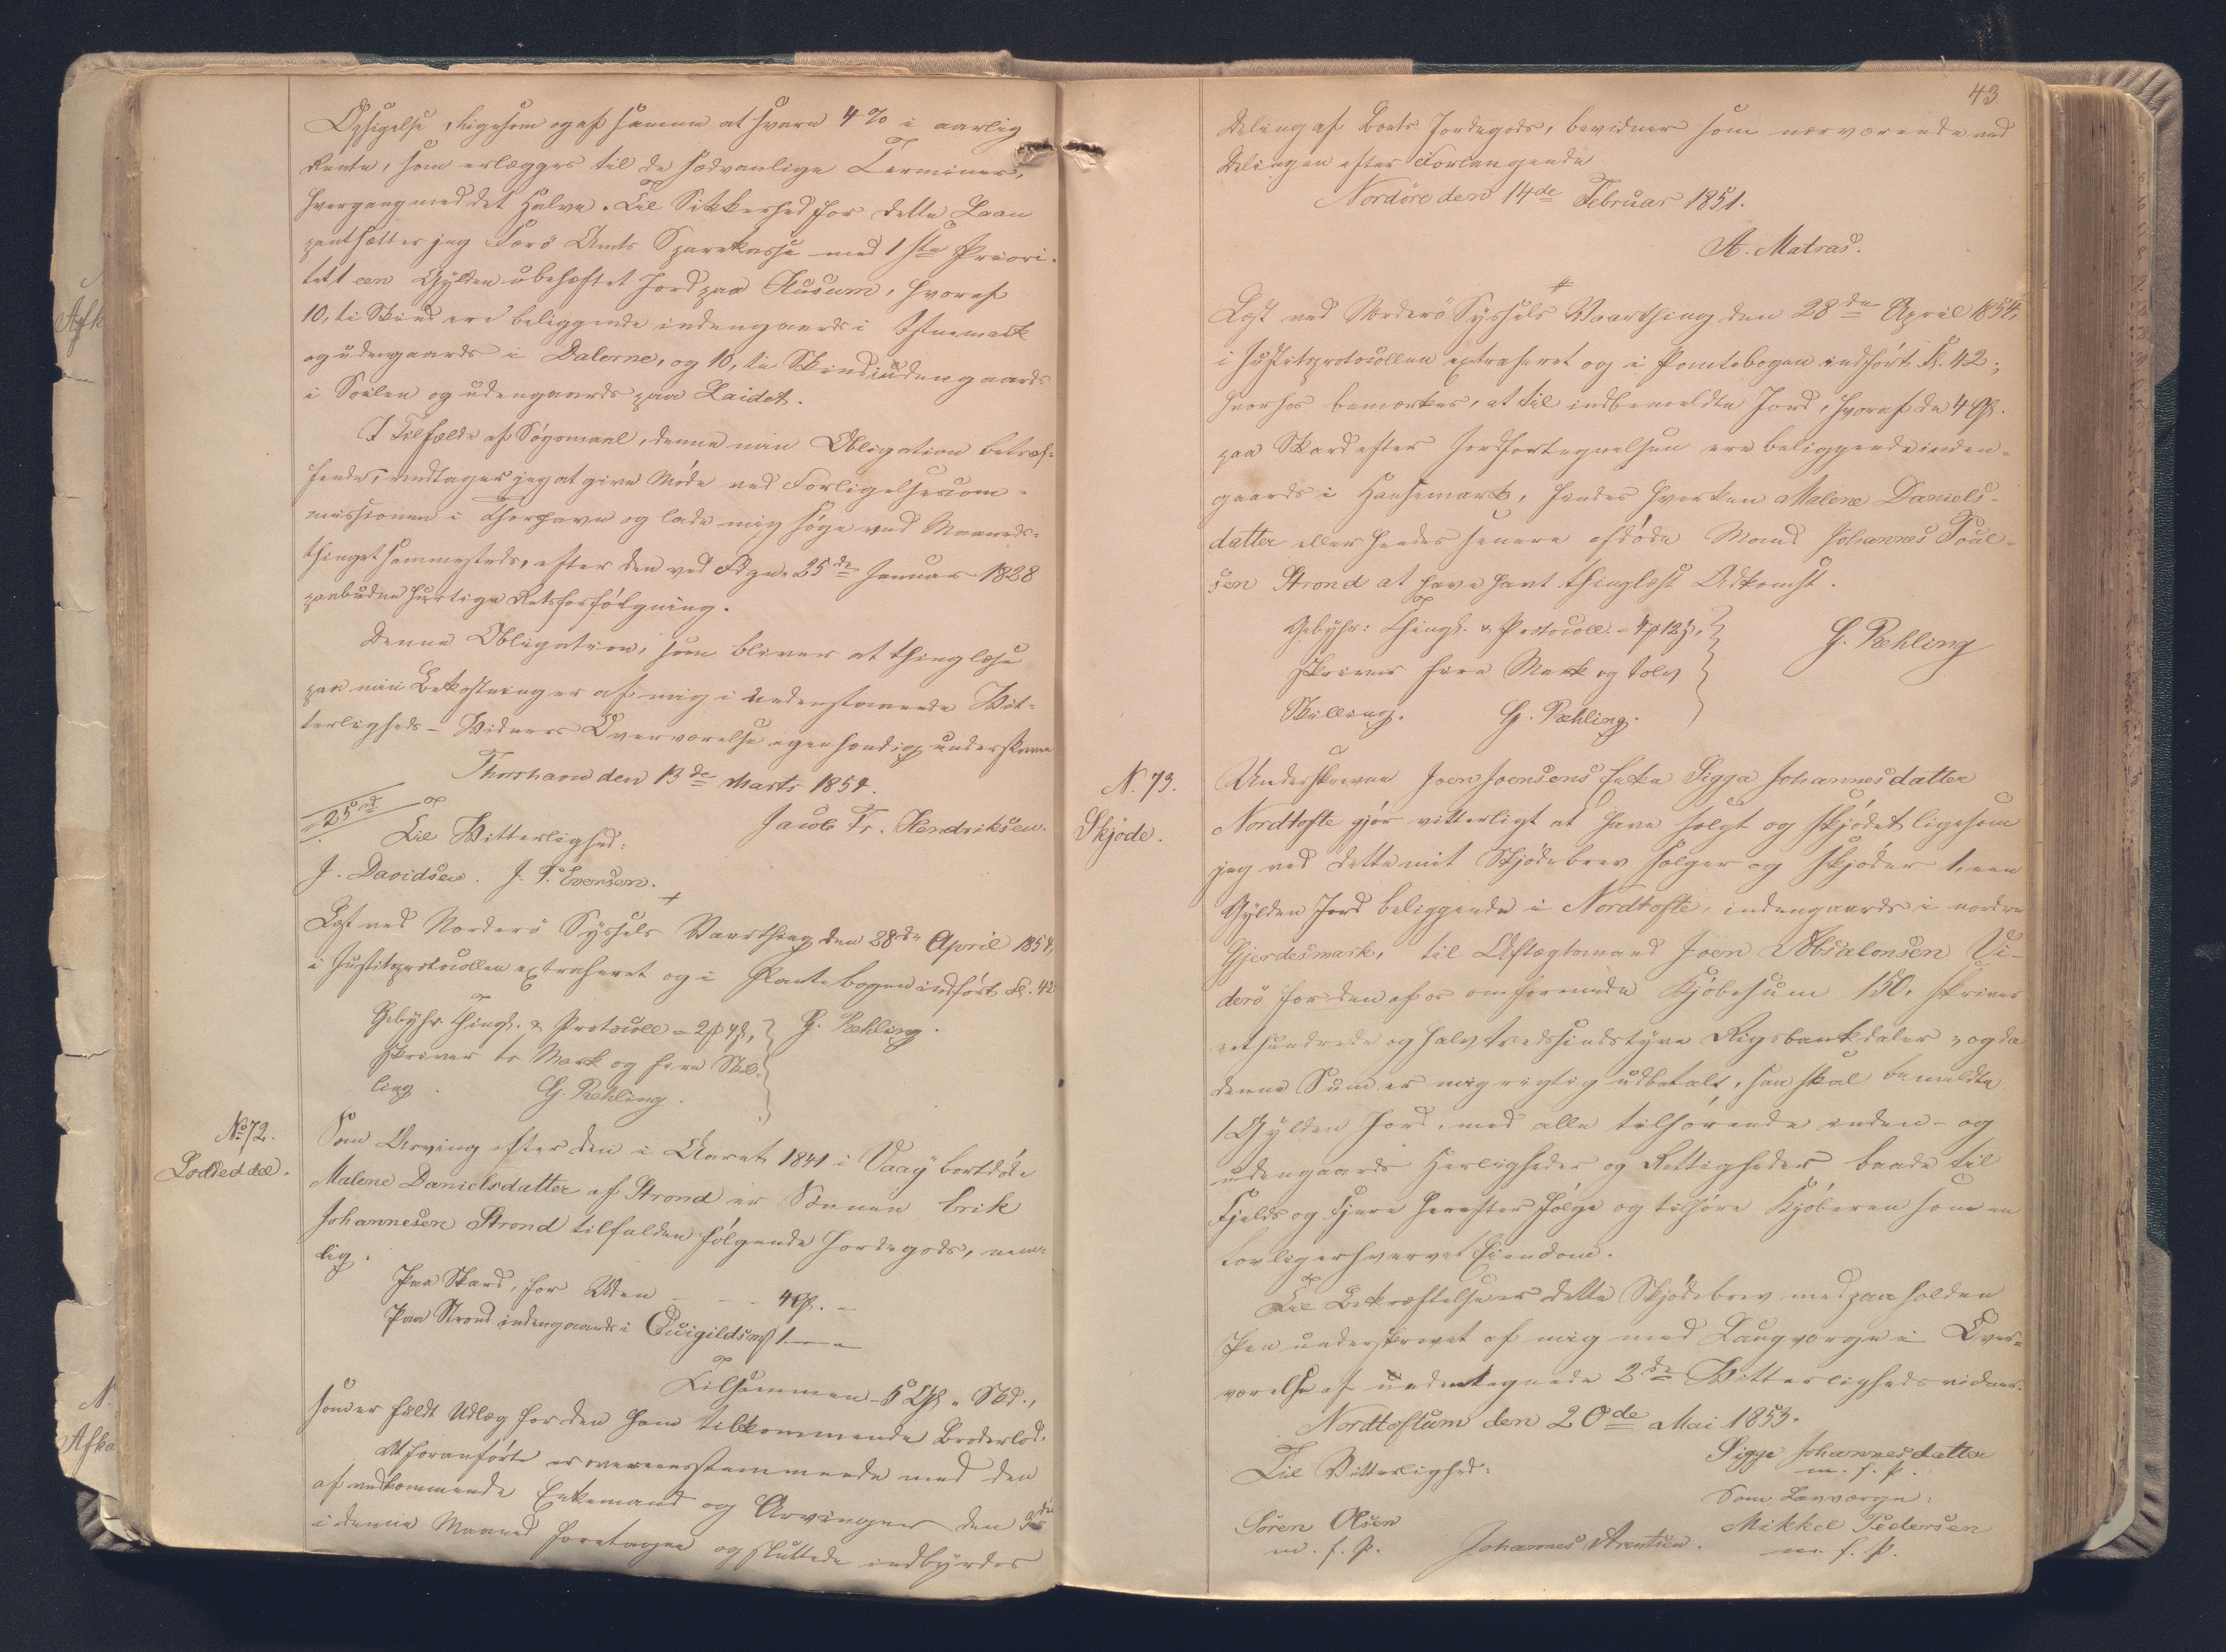 Opsigelse, ligesom og af samme at svare 4 % i aarlig
Rente, som erlægges til de sædvanlige Terminer,
hvergang med det Halve. Til Sikkerhed for dette Laan
pantsætter jeg Færö Amts Sparekasse med 1ste Priori-
tet 1 een Gylden ubehæftet Jord paa Husum, hvoraf
10, ti Skind ere beliggende indengaards i
og udengaards i Dalerne, og 10, ti Skind indengaards
i og udengaards paa Laidet.
I Tilfælde af Søgsmaal, denne min Obligation betræf-
fende, vedtager jeg at give Møde ved Forligelsescom-
missionen i Thorshavn og lade mig søge ved Maaneds-
thinget sammesteds, efter den ved Fdgn. 25de Januar 1828
paabudne hurtige Retsforfølgning.
Denne Obligation, som bliver at thinglæse
paa min Bekostning er af mig i undenstaaende Vit-
terligheds-Vidners Overværelse egenhændig underskreven
Thorshavn den 13de Marts 1854.
Jacob Fr. Hendriksen.
25
Til Vitterlighed:
J. Davidsen. J. P. Evensen.
+
Læst ved Norderö Syssels Vaarthing den 28de April 1854,
i Justitsprotocollen extraheret og i Pantebogen indført Fl. 42
Gebyhr: Thingl. & Protocoll = 2 ℳ 4 ß,
skriver to Mark og fire Skil-
ling. G. Rehling.
G. Rehling.
No 72.
Lodseddel.
Som Arving efter den i Aaret 1841 i Vaag bortdøde
Malene Danielsdatter af Strond er Sønnen Erik
Johannesen Strond tilfalden følgende Jordegods, nem-
lig:
Paa Skard, for Uden - - 4 G. -
Paa Strond indengaards i 1 - -
Tilsammen - 5 G. " Skd.,
som er fuldt Udlæg for den ham tilkommende Broderlod.
At foranførte er overeensstemmende med den
af vedkommende Enkemand og Arvinger den 3die
i denne Maaned foretagne og sluttede indbyrdes
43
Deling af Boets Jordegods, bevidner som nærværende ved
Delingen efter Forlangende
Nordöre den 14de Februar 1851.
A. Matras.
Læst ved Norderö Syssels Vaarthing den 28de April 1854,
i Justitsprotocollen extraheret og i Pantebogen indført Fl. 42;
hvorhos bemærkes, at til indbemeldte Jord, hvoraf de 4 G.
paa Skard efter Jordfortegnelsen ere beliggende inden-
gaards i Hansemark, findes hverken Malene Daniels-
datter eller hendes senere afdøde Mand Johannes Poul-
sen Strond at have havt thinglæst Adkomst.
Gebyhr: Thingl. & Protocoll. = 4 ℳ 12 ß,
skriver fire Mark og tolv
Skilling. G. Rehling.
G. Rehling
N. 73.
Skjöde.
Underskrevne Joen Joensens Enke Sigga Johannesdatter
Nordtofte gjør vitterligt at have solgt og skjødet ligesom
jeg ved dette mit Skjødebrev sælger og skjøder 1, een
Gylden Jord beliggende i Nordtofte, indengaards i nordre
Gjerdesmark, til Aftægtsmand Joen Absalonsen Vi-
derö for den af os omforenede Kjøbesum 150, skriver
eethundrede og halvtredsindstyve Rigsbankdaler, og da
denne Sum er mig rigtig udbetalt, saa skal bemeldte
1 Gylden Jord, med alle tilhørende inden- og
udengaards Herligheder og Rettigheder baade til
Fjelds og Fjære herefter følge og tilhøre Kjøberen som en
lovlig erhvervet Eiendom.
Til Bekræftelse er dette Skjødebrev med paaholden
Pen underskrevet af mig med Laugværge i Over-
værelse af undertegnede 2de Vitterlighedsvidner.
Nordtoftum den 20de Mai 1853.
Sigga Johannesdatter
m. f. P.
Til Vitterlighed:
Som Lavværge:
Sören Olsen
m. f. P.
Johannes Arentsen.
Mikkel Pedersen
m. f. P.